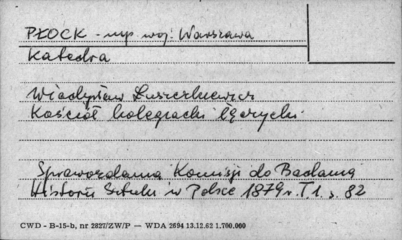 PŁOCK - mp woj: Warszawa
Katedra
Władysław Łuszczkiewicz
Kościół kolegiacki łęczycki
Sprawozdania Komisji do Badania
Historii Sztuki w Polsce 1879 r. T 1. s. 82
CWD - B-15-b, nr 2827/ZW/P — WDA 2694 13.12.62 1.700.000